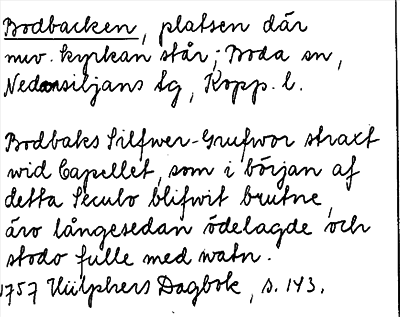 Bodbacken, platsen där
nuv. kyrkan står; Boda sn,
Nedansiljans tg, Kopp. l.
Bodbaks Silfwer-Grufwor straxt
wid Capellet, som i början af
detta Seculo blifwit brutne,
äro långesedan ödelagde och
stodo fulle med watn.
1757 Hülphers Dagbok, s. 143.